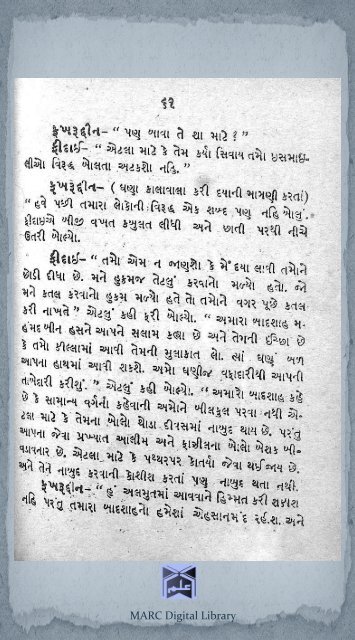 ૬૨
ફખરૂદ્દીન– “ પણ બાવા તે શા માટે ? ”
ફીદાઈ– “ એટલા માટે કે તેમ કર્યા સિવાય તમો ઇસમાઇ-
લીઓ વિરૂદ્ધ બોલતા અટકશો નહિ. ”
ફખરૂદ્દીન– ( ઘણા કાલાવાલા કરી દયાની માગણી કરતાં )
“ હવે પછી તમારા લોકોની વિરૂદ્ધ એક શબ્દ પણ નહિ બોલું.
ફીદાઇએ બીજી વખત કબુલત લીધી અને છાતી પરથી નીચે
ઉતરી બોલ્યો.
ફીદાઈ– “ તમો એમ ન જાણશો કે મેં દયા લાવી તમોને
છોડી દીધા છે. મને હુકમજ તેટલું કરવાનો મળ્યો હતો. જો
મને કતલ કરવાનો હુકમ મળ્યો હતે તો તમોને વગર પૂછે કતલ
કરી નાખતે ” એટલું કહી ફરી બોલ્યો. “ અમારા બાદશાહ મ-
હંમદ બીન હસને આપને સલામ કહ્યા છે અને તેમની ઈચ્છા છે
કે તમો કીલ્લામાં આવી તેમની મુલાકાત લો. ત્યાં ઘણું બળ
આપના હાથમાં આવી શકશે. અમો ઘણીજ વફાદારીથી આપની
તાબેદારી કરીશું. ” એટલું કહી બોલ્યો. “ અમારો બાદશાહ કહે
છે કે સામાન્ય વર્ગના કહેવાની અમોને બીલકુલ પરવા નથી એ-
ટલા માટે કે તેમના બોલો થોડા દીવસમાં નાબુદ થાય છે. પરંતુ
આપના જેવા પ્રખ્યાત આલીમ અને ફાઝીલના બોલો બેશક બી-
વડાવનાર છે. એટલા માટે કે પથ્થરપર કોતર્યા જેવા થઈ જાય છે.
અને તેને નાબુદ કરવાની કોશીશ કરતાં પણ નાબુદ થતા નથી.
ફખરૂદ્દીન– “ હું અલમુતમાં આવવાને હિમ્મત કરી શકીશ
નહિ પરંતુ તમારા બાદશાહનો હમેશાં એહસાનમંદ રહીશ. અને
MARC Digital Library